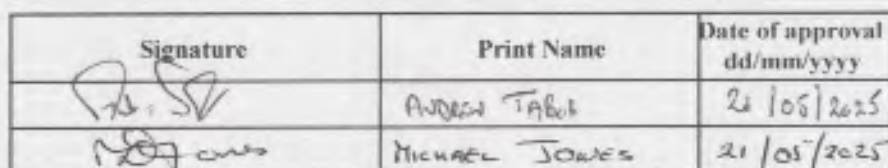 Signature Print Name Date of approval
dd/mm/yyyy
ANDREW 21/05/2025
MICHAEL JONES 21/05/2025